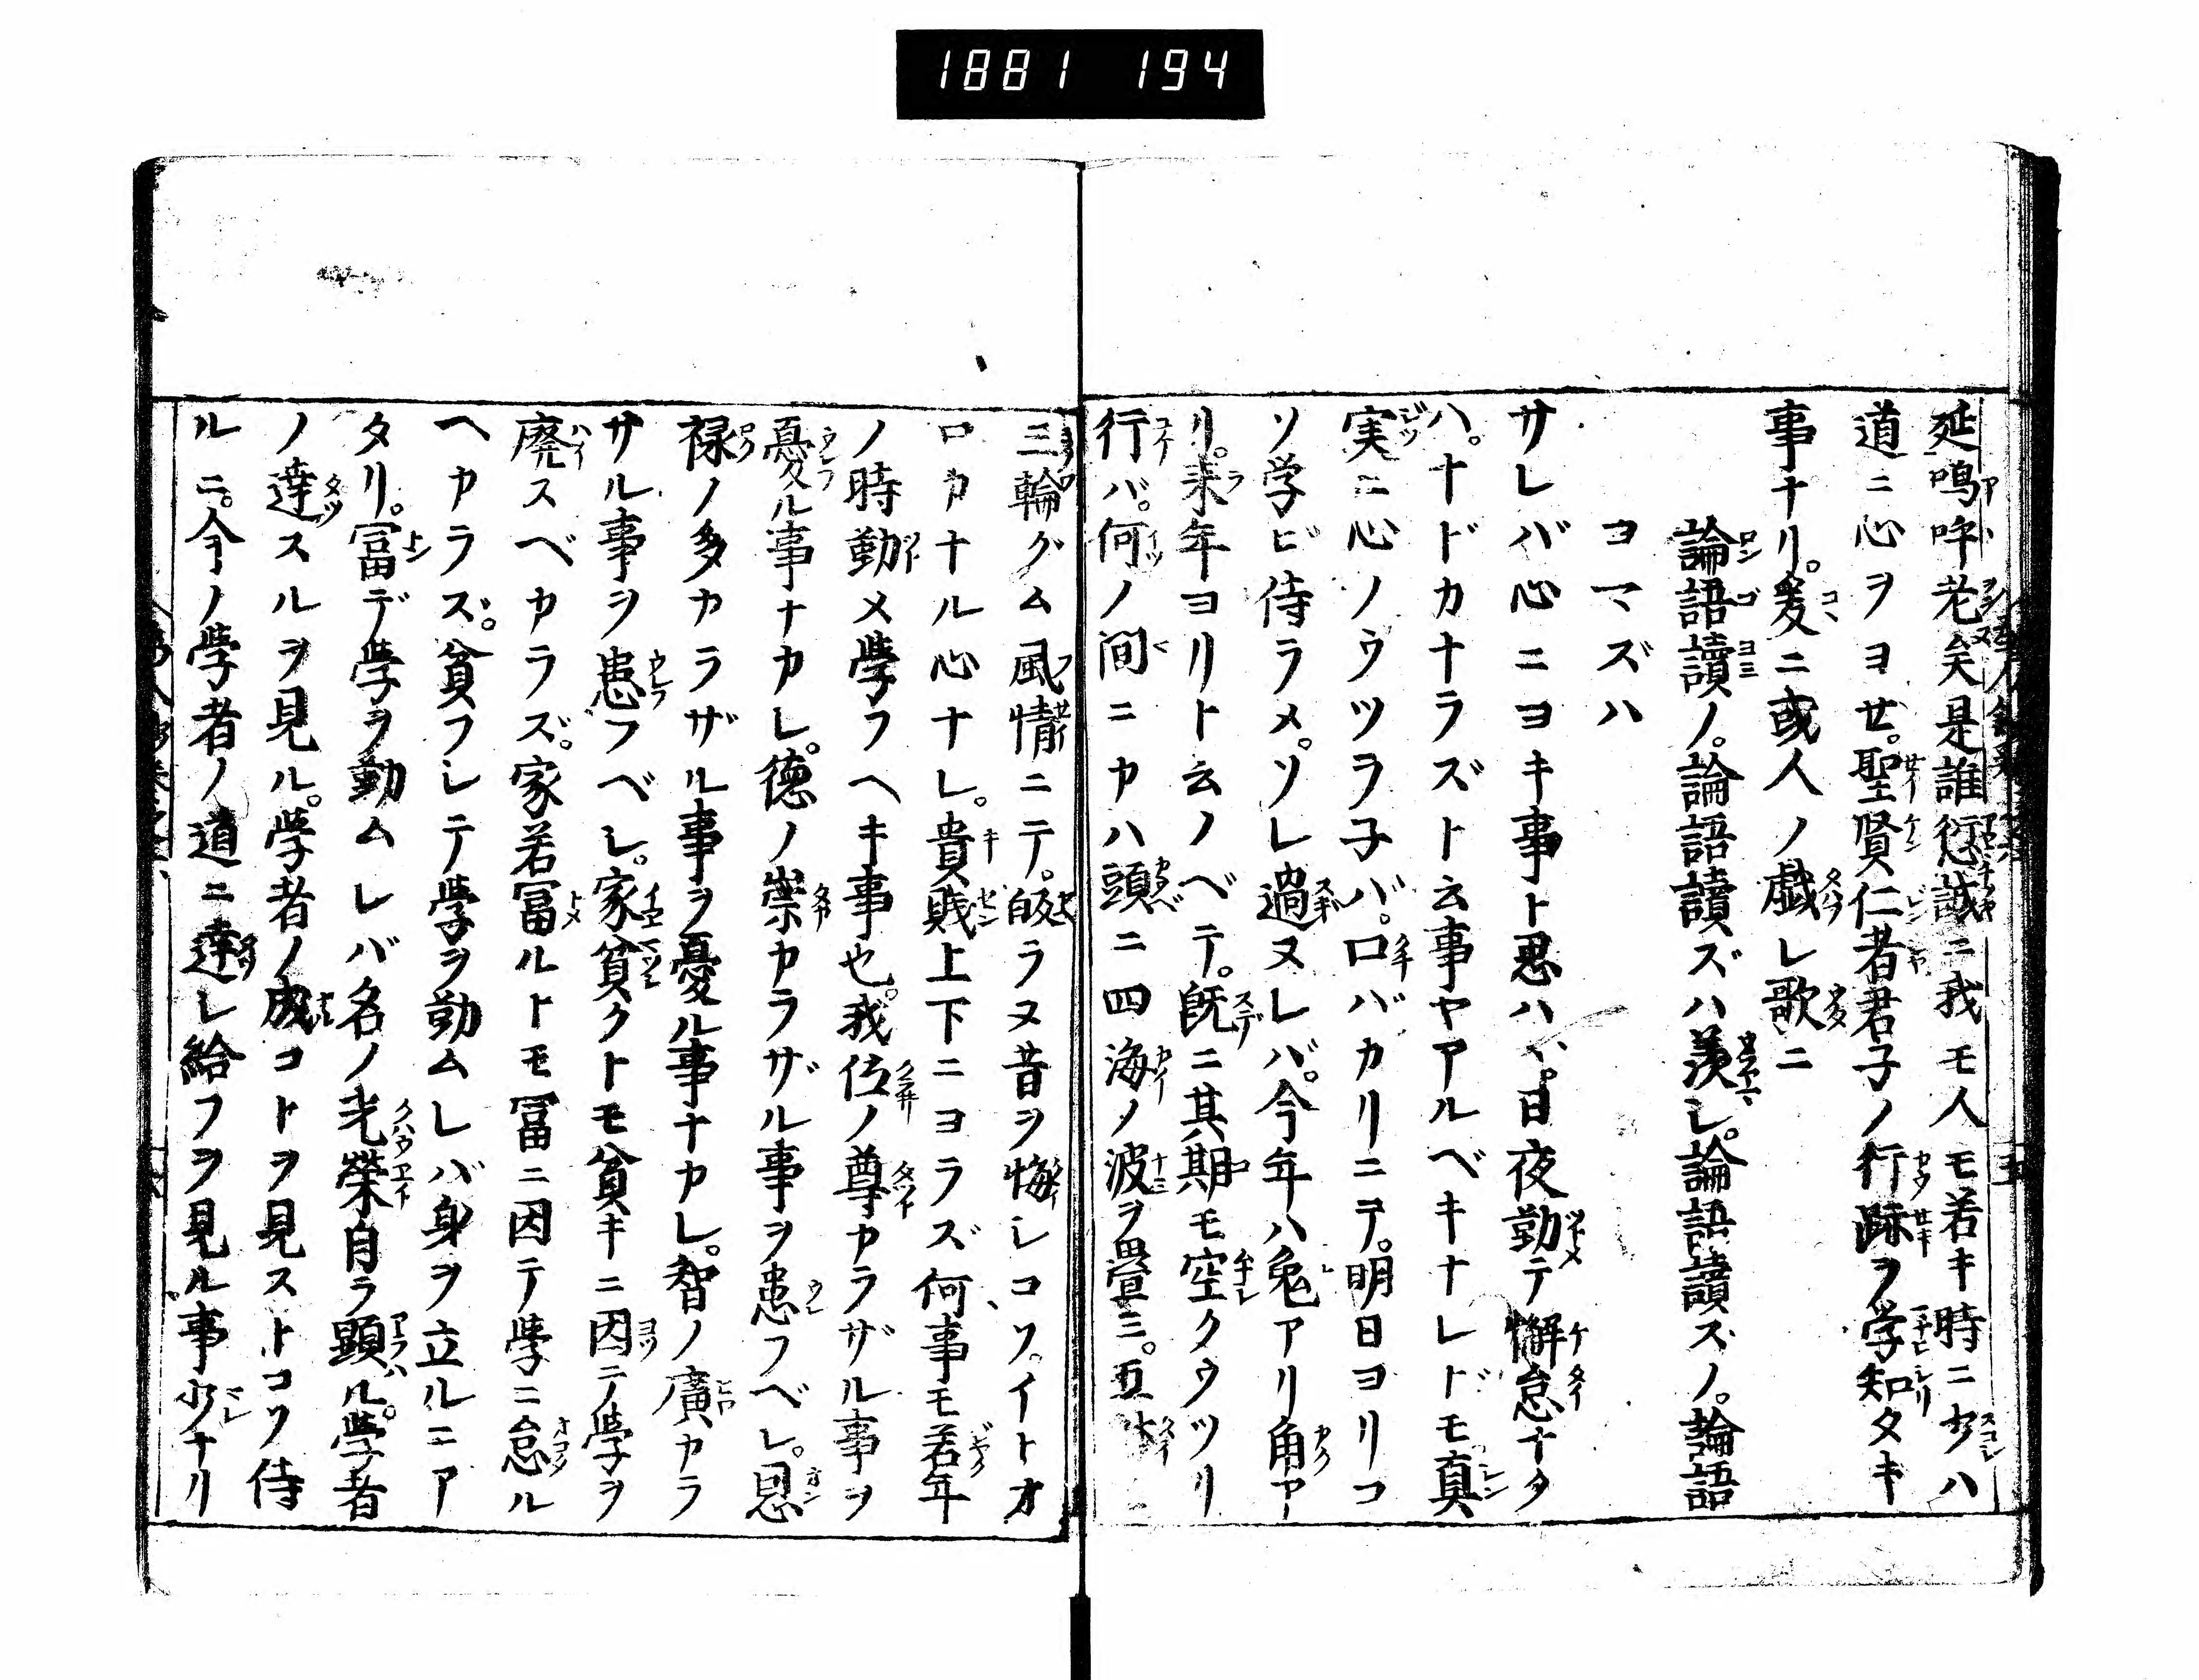 1881 194
延鳴呼老矣是誰愆誠ニ我モ人モ若キ時ニ少ハ
道ニ心ヲヨセ。聖賢仁者君子ノ行跡ヲ学知タキ
事ナリ。爰ニ或人ノ戯レ歌ニ
論語讀ノ。論語讀ズハ羨し。論語讀ズノ。論語
ヨマズハ
サレバ心ニヨキ事ト思ハヾ。日夜勤テ懈怠ナク
ハ。ナドカナラズト云事ヤアルベキナレドモ真
実ニ心ノウツラ子バ。口バカリニテ。明日ヨリコ
ソ学ビ侍ラメ。ソレ過ヌレバ。今年ハ兔アリ角ア
リ。来年ヨリト云ノベテ。既ニ其期モ空クウツリ
行バ。何ノ間ニカハ頭ニ四海ノ波ヲ畳ミ。五体ニ
三輪グム風情ニテ。皈ラヌ昔ヲ悔シコソ。イトオ
ロカナル心ナレ。貴賎上下ニヨラズ何事モ若年
ノ時勤メ學フヘキ事也。我位ノ尊カラザル事ヲ
憂ル事ナカレ。德ノ崇カラザル事ヲ患フベレ。恩
禄ノ多カラザル事ヲ憂ル事ナカレ。智ノ廣カラ
サル事ヲ患フベレ。家貧クトモ貧キニ因テ學ヲ
廃スベカラズ。家若冨ルトモ冨ニ因テ學ニ怠ル
ヘカラズ。貧フレテ學ヲ勤ムレバ身ヲ立ルニア
タリ。冨デ學ヲ勤ムレバ名ノ光榮自ラ顕ル。學者
ノ達スルヲ見ル。學者ノ成コトヲ見ストコソ侍
ルニ。今ノ學者ノ道ニ達し給フヲ見ル事少ナリ